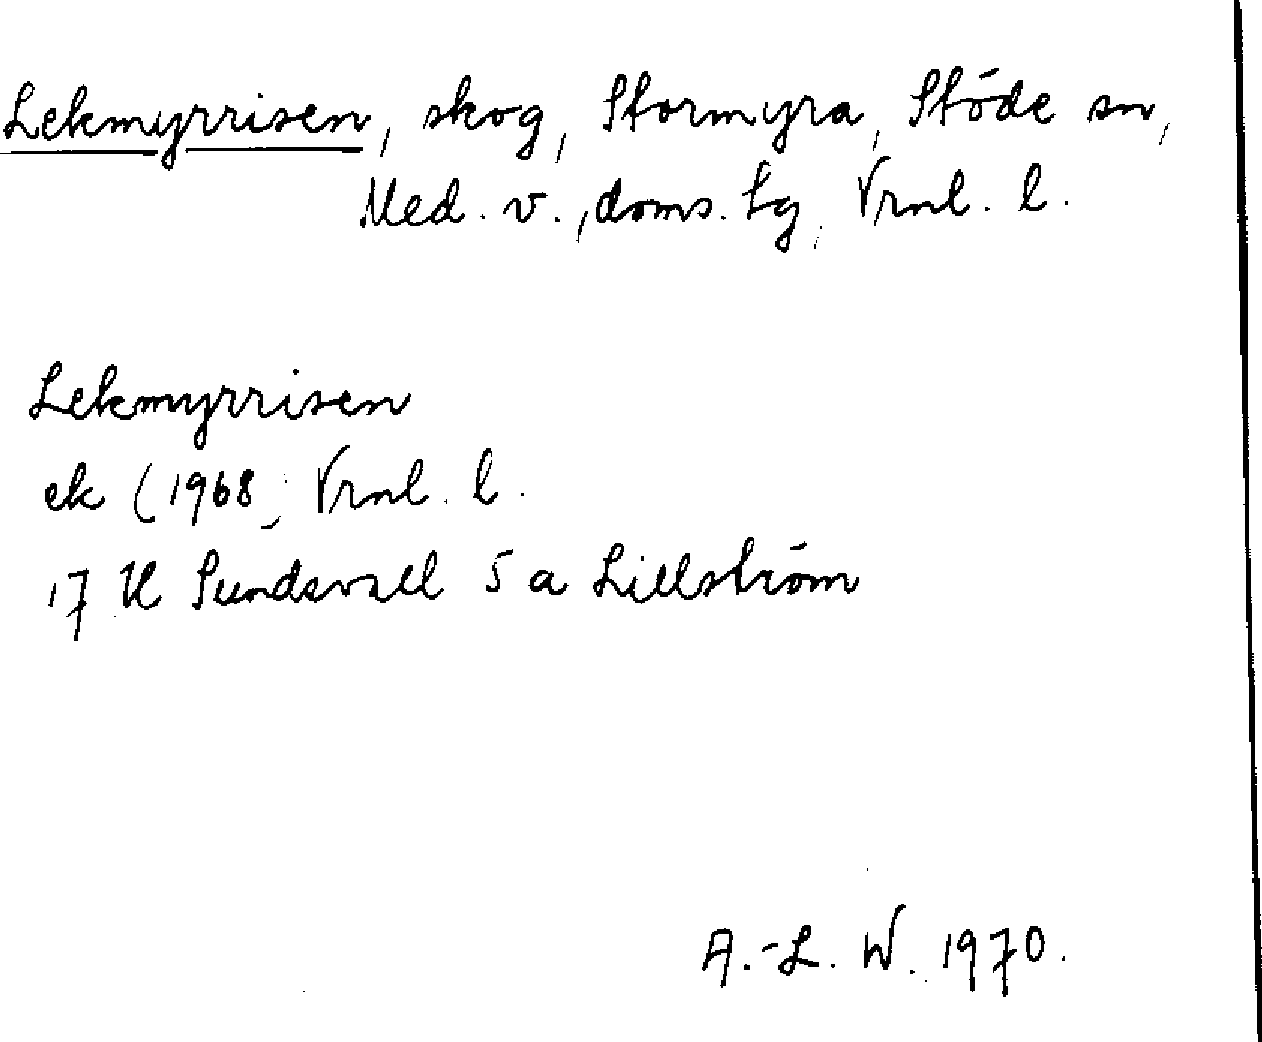 Lekmyrrisen, skog, Stormyra, Stöde sn,
Med. v., doms. tg, Vrnl. l.
Lekmyrrisen
ek (1968, Vrnl. l.
17 H Sundsvall 5 a Lillström
A.-L. W. 1970.